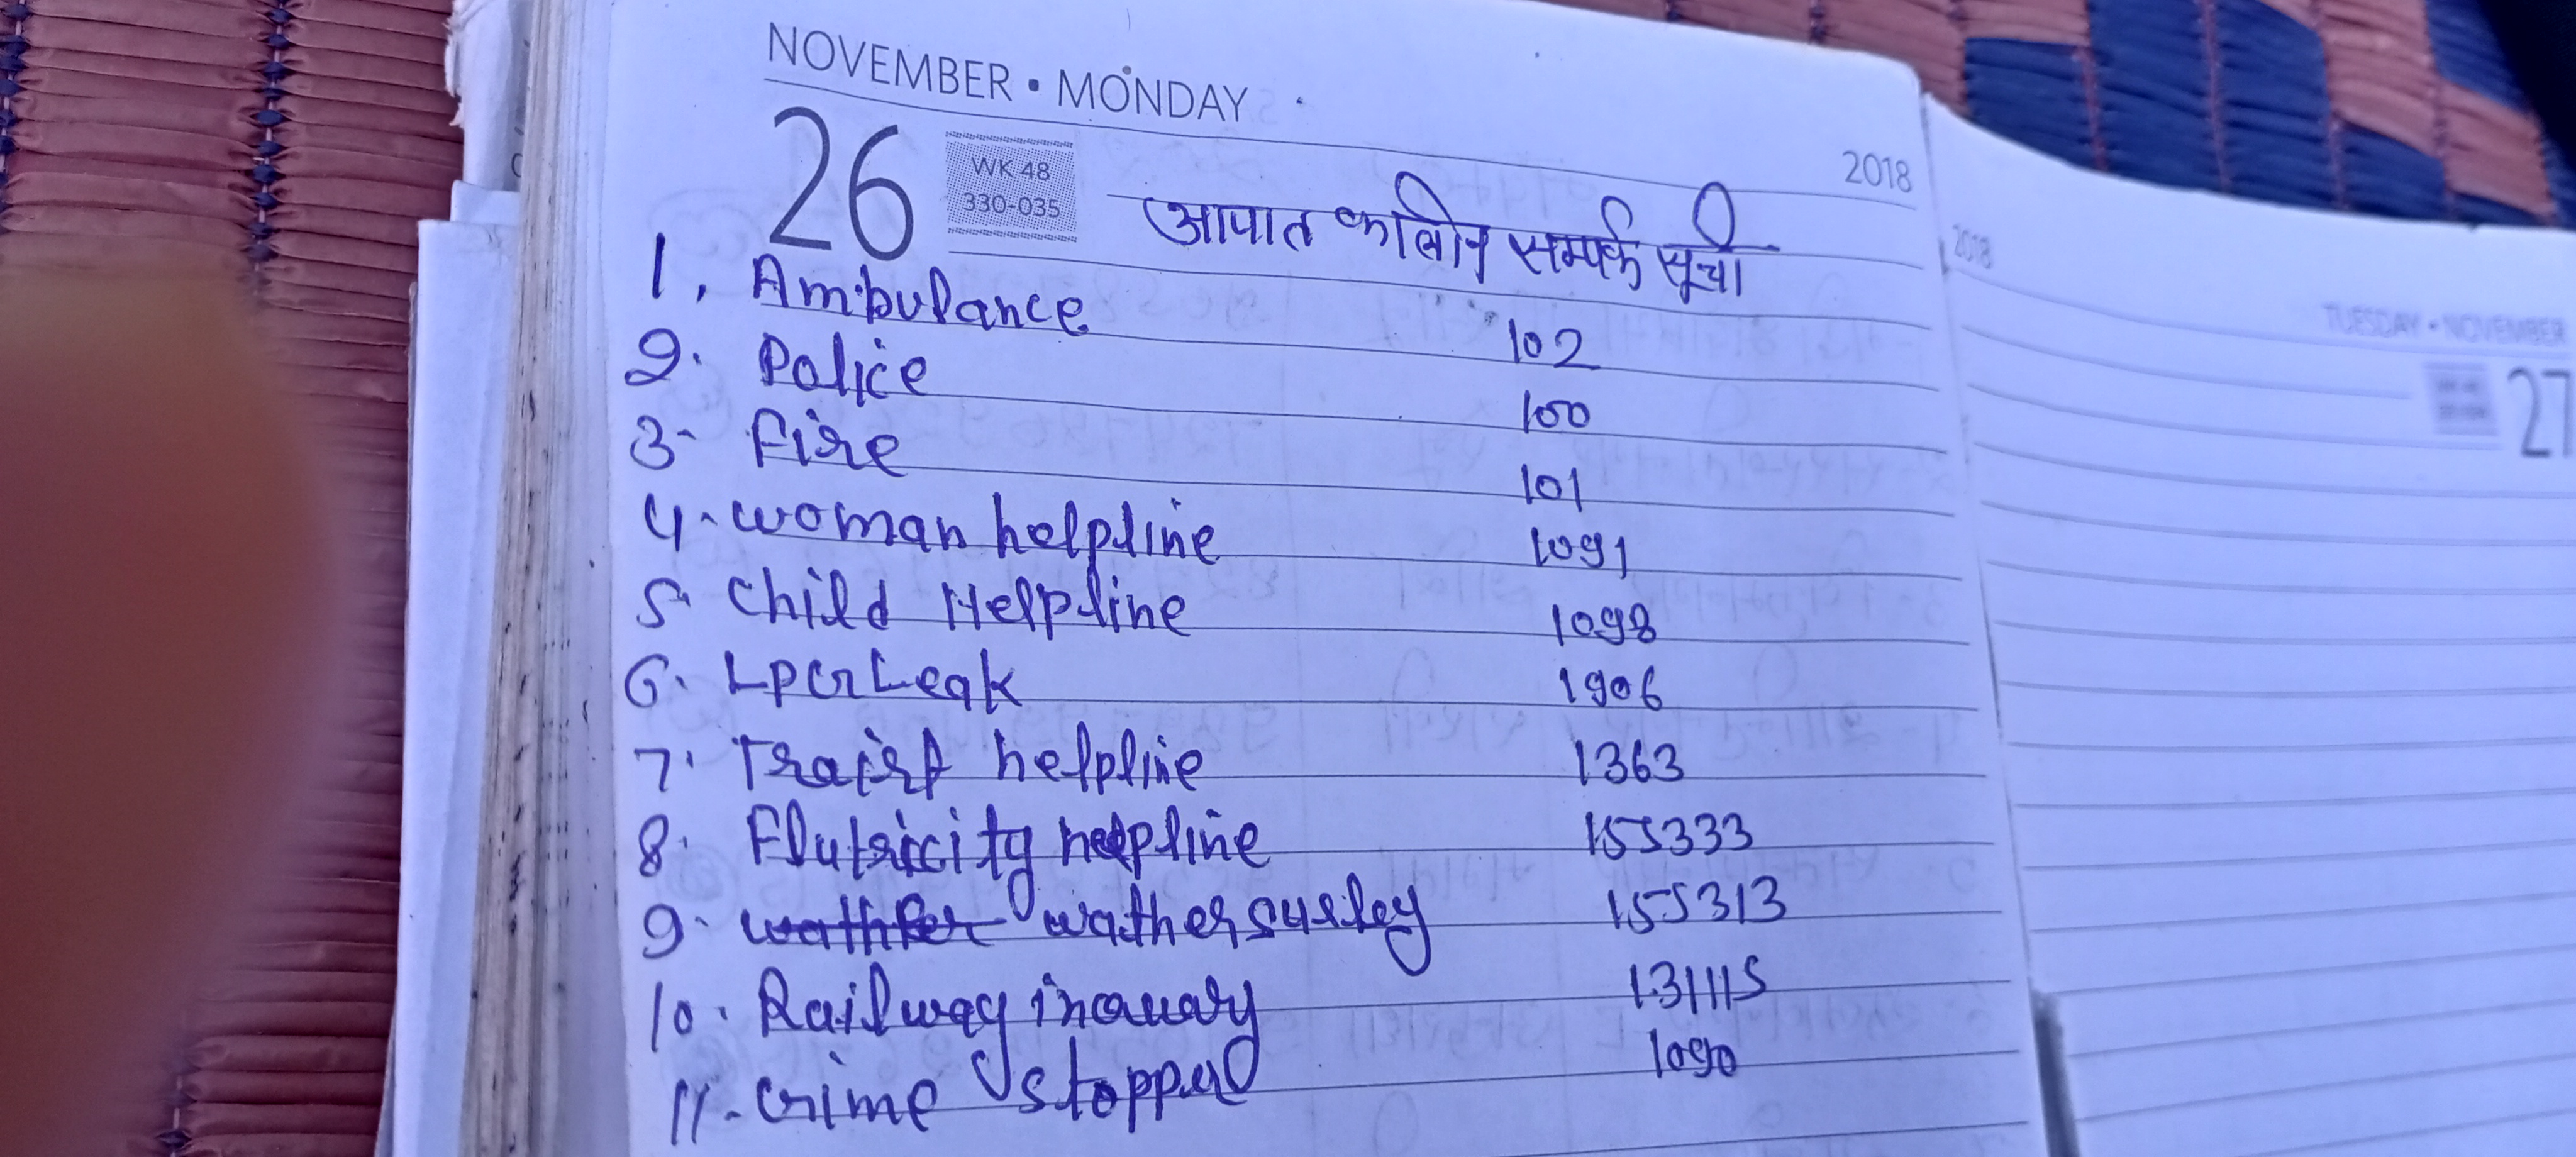 NOVEMBER • MONDAY
26
WK 48
330-035
2018
आपात कालिन सम्पर्क सूची
1. Ambulance 102
2. Police 100
3- Fire 101
4. woman helpline 1091
5. Child Helpline 1098
6. LPG Leak 1906
7. helpline 1363
8. helpline 155333
9. wather 155313
10. Railway 131115
11. Crime 1090
2018
TUESDAY • NOVEMBER
27